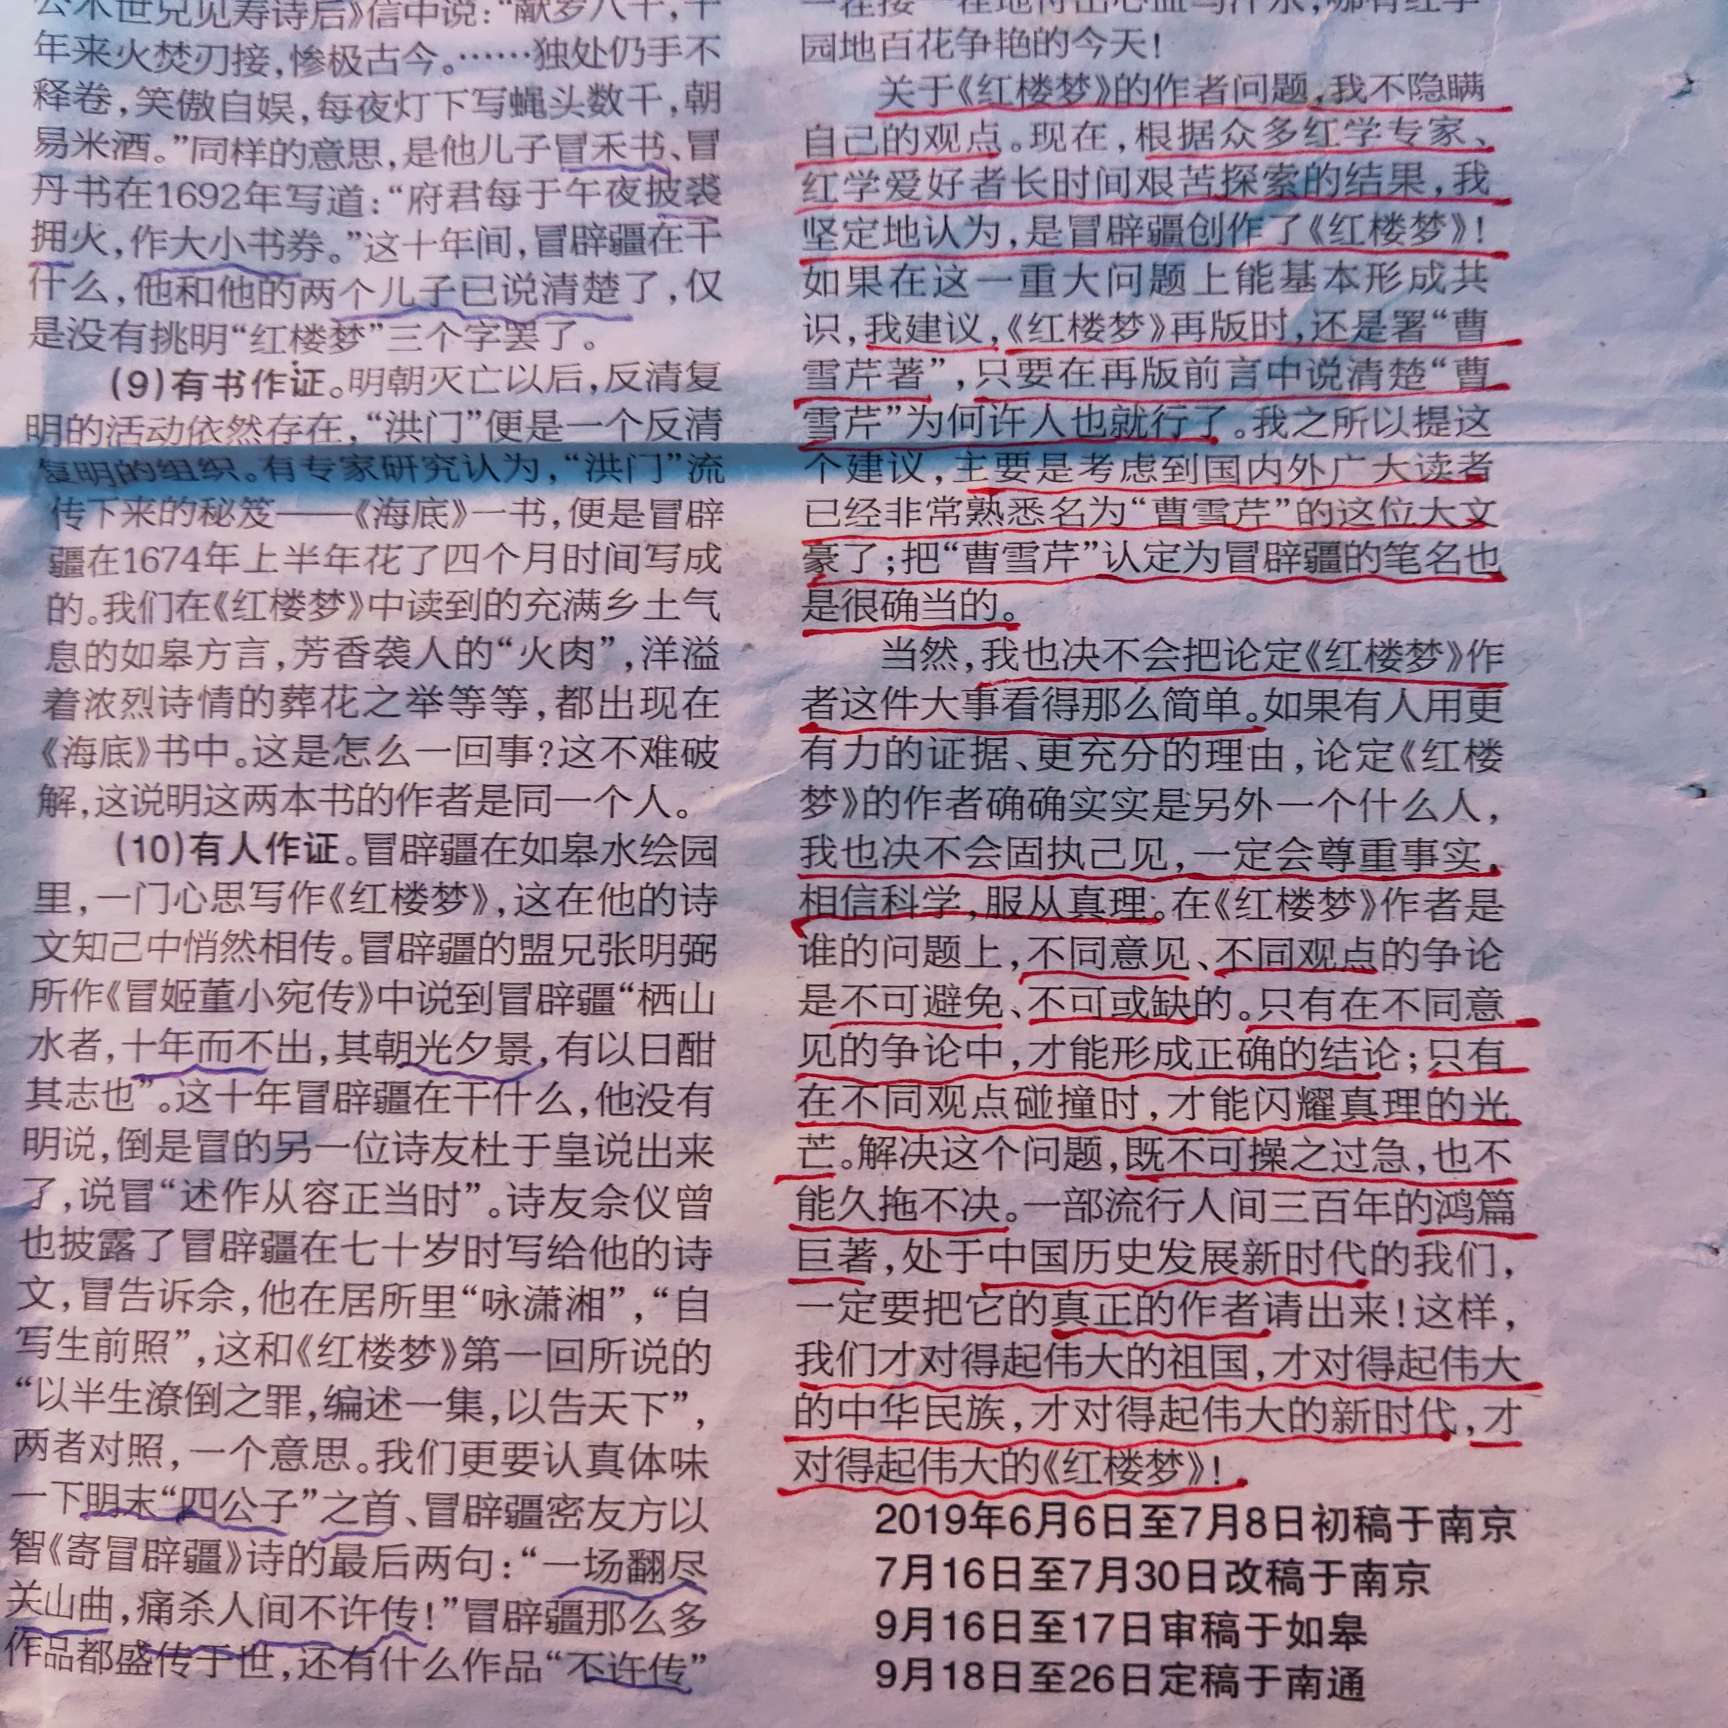 公木世兄见寿诗后》信中说：“献岁八十，十
年来火焚刃接，惨极古今。……独处仍手不
释卷，笑傲自娱，每夜灯下写蝇头数千，朝
易米酒。”同样的意思，是他儿子冒禾书、冒
丹书在1692年写道：“府君每于午夜披裘
拥火，作大小书券。”这十年间，冒辟疆在干
什么，他和他的两个儿子已说清楚了，仅
是没有挑明“红楼梦”三个字罢了。
(9)有书作证。明朝灭亡以后，反清复
明的活动依然存在，“洪门”便是一个反清
复明的组织。有专家研究认为，“洪门”流
传下来的秘笈——《海底》一书，便是冒辟
疆在1674年上半年花了四个月时间写成
的。我们在《红楼梦》中读到的充满乡土气
息的如皋方言，芳香袭人的“火肉”，洋溢
着浓烈诗情的葬花之举等等，都出现在
《海底》书中。这是怎么一回事？这不难破
解，这说明这两本书的作者是同一个人。
(10)有人作证。冒辟疆在如皋水绘园
里，一门心思写作《红楼梦》，这在他的诗
文知己中悄然相传。冒辟疆的盟兄张明弼
所作《冒姬董小宛传》中说到冒辟疆“栖山
水者，十年而不出，其朝光夕景，有以日酣
其志也”。这十年冒辟疆在干什么，他没有
明说，倒是冒的另一位诗友杜于皇说出来
了，说冒“述作从容正当时”。诗友佘仪曾
也披露了冒辟疆在七十岁时写给他的诗
文，冒告诉佘，他在居所里“咏潇湘”，“自
写生前照”，这和《红楼梦》第一回所说的
“以半生潦倒之罪，编述一集，以告天下”，
两者对照，一个意思。我们更要认真体味
一下明末“四公子”之首、冒辟疆密友方以
智《寄冒辟疆》诗的最后两句：“一场翻尽
关山曲，痛杀人间不许传！”冒辟疆那么多
作品都盛传于世，还有什么作品“不许传”
园地百花争艳的今天！
关于《红楼梦》的作者问题，我不隐瞒
自己的观点。现在，根据众多红学专家、
红学爱好者长时间艰苦探索的结果，我
坚定地认为，是冒辟疆创作了《红楼梦》！
如果在这一重大问题上能基本形成共
识，我建议，《红楼梦》再版时，还是署“曹
雪芹著”，只要在再版前言中说清楚“曹
雪芹”为何许人也就行了。我之所以提这
个建议，主要是考虑到国内外广大读者
已经非常熟悉名为“曹雪芹”的这位大文
豪了；把“曹雪芹”认定为冒辟疆的笔名也
是很确当的。
当然，我也决不会把论定《红楼梦》作
者这件大事看得那么简单。如果有人用更
有力的证据、更充分的理由，论定《红楼
梦》的作者确确实实是另外一个什么人，
我也决不会固执己见，一定会尊重事实，
相信科学，服从真理。在《红楼梦》作者是
谁的问题上，不同意见、不同观点的争论
是不可避免、不可或缺的。只有在不同意
见的争论中，才能形成正确的结论；只有
在不同观点碰撞时，才能闪耀真理的光
芒。解决这个问题，既不可操之过急，也不
能久拖不决。一部流行人间三百年的鸿篇
巨著，处于中国历史发展新时代的我们，
一定要把它的真正的作者请出来！这样，
我们才对得起伟大的祖国，才对得起伟大
的中华民族，才对得起伟大的新时代，才
对得起伟大的《红楼梦》！
2019年6月6日至7月8日初稿于南京
7月16日至7月30日改稿于南京
9月16日至17日审稿于如皋
9月18日至26日定稿于南通